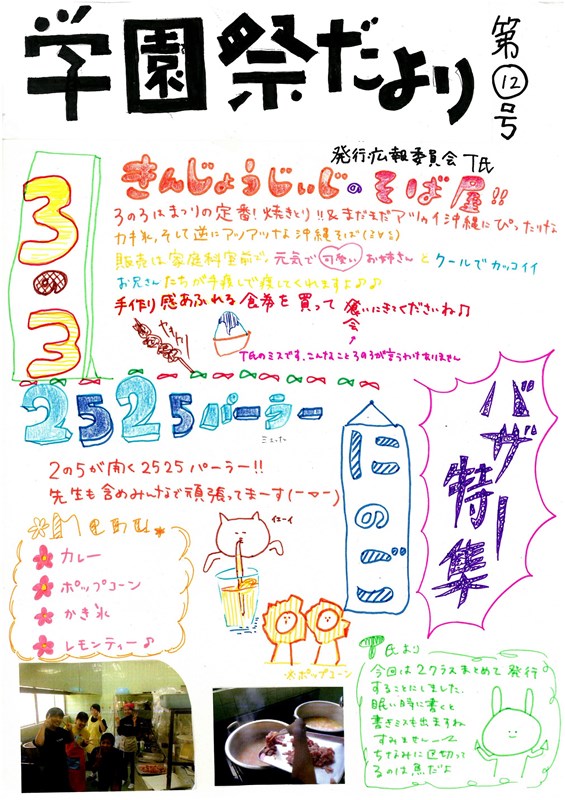 学園祭だより
第⑫号
発行:広報委員会 T氏
3の3
きんじょうじぃじのそば屋!!
3の3はまつりの定番!焼きとり!!&まだまだアツゥイ沖縄にぴったりな
カキ氷、そして逆にアツアツな沖縄そば(≧∀≦)
販売は家庭科室前で。元気で可愛いお姉さんとクールでカッコイイ
お兄さんたちが手渡しで渡してくれますよ♪♪♪
手作り感あふれる食券を買って食いにきてくださいね♫
会
T氏のミスです。こんなこと3の3が言うわけありません
2525パーラー
バザー特集
にのご
2の5が開く2525パーラー!!
先生も含めみんなで頑張ってまーす(ー▽ー)
Menu
カレー
ポップコーン
かき氷
レモンティー♪
イエーイ
※ポップコーン
T氏より
今回は2クラスまとめて発行
することにしました。
眠い時に書くと
書きミスも出ますね
すみませんー
ちなみに区切って
るのは魚だよ